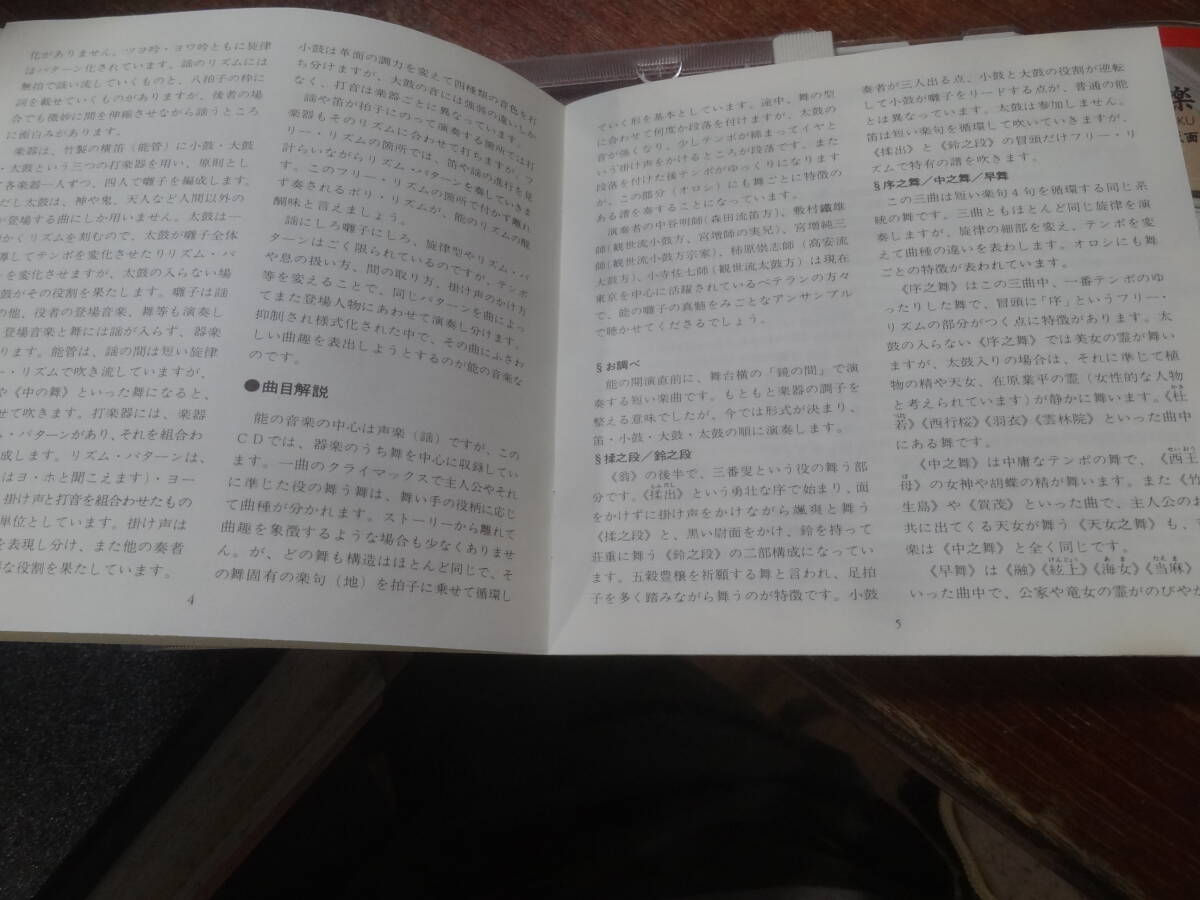 化がありません。ツヨ吟・ヨワ吟ともに旋律
はパターン化されています。謡のリズムには
無拍で謡い流していくものと、八拍子の枠に
詞を載せていくものがありますが、後者の場
合でも微妙に間を伸縮させながら謡うところ
に面白みがあります。
楽器は、竹製の横笛(能管)に小鼓・大鼓
・太鼓という三つの打楽器を用い、原則とし
て各楽器一人ずつ、四人で囃子を編成します。
だし太鼓は、神や鬼、天人など人間以外の
が登場する曲にしか用いません。太鼓は一
かくリズムを刻むので、太鼓が囃子全体
導してテンポを変化させたりリズム・パ
ンを変化させますが、太鼓の入らない場
鼓がその役割を果たします。囃子は謡
の他、役者の登場音楽、舞等も演奏し
登場音楽と舞には謡が入らず、器楽
ります。能管は、謡の間は短い旋律
ー・リズムで吹き流していますが、
や《中の舞》といった舞になると、
せて吹きます。打楽器には、楽器
ム・パターンがあり、それを組合わ
成します。リズム・パターンは、
はヨ・ホと聞こえます)・ヨー
掛け声と打音を組合わせたもの
単位としています。掛け声は
を表現し分け、また他の奏者
な役割を果たしています。
4
小鼓は革面の調力を変えて四種類の音色を打
ち分けますが、大鼓の音には強弱の違いしか
なく、打音は楽器ごとに異なっています。
謡や笛が拍子にのって演奏する箇所では打
楽器もそのリズムに合わせて打ちますが、フ
リー・リズムの箇所では、笛や謡の進行を見
計らいながらリズム・パターンを奏していきま
す。このフリー・リズムの箇所で付かず離れ
ず奏されるポリ・リズムが、能のリズムの醍
醐味と言えましょう。
謡にしろ囃子にしろ、旋律型やリズム・パ
ターンはごく限られているのですが、テンポ
や息の扱い方、間の取り方、掛け声のかけ方
等を変えることで、同じパターンを曲によっ
てまた登場人物にあわせて演奏し分けます。
抑制され様式化された中で、その曲にふさわ
しい曲趣を表出しようとするのが能の音楽な
のです。
●曲目解説
能の音楽の中心は声楽(謡)ですが、この
CDでは、器楽のうち舞を中心に収録してい
ます。一曲のクライマックスで主人公やそれ
に準じた役の舞う舞は、舞い手の役柄に応じ
て曲種が分かれます。ストーリーから離れて
曲趣を象徴するような場合も少なくありませ
ん。が、どの舞も構造はほとんど同じで、そ
の舞固有の楽句(地)を拍子に乗せて循環し
ていく形を基本としています。途中、舞の型
に合わせて何度か段落を付けますが、太鼓の
音が強くなり、少しテンポが締まってイヤと
いう掛け声をかけるところが段落です。また
段落を付けた後テンポがゆっくりになります
が、この部分(オロシ)にも舞ごとに特徴の
ある譜を奏することになっています。
演奏者の中谷明師(森田流笛方)、敷村鐵雄
師(観世流小鼓方、宮増師の実兄)、宮増純三
師(観世流小鼓方宗家)、柿原崇志師(高安流
大鼓方)、小寺佐七師(観世流太鼓方)は現在
東京を中心に活躍されているベテランの方々
で、能の囃子の真髄をみごとなアンサンブル
で聴かせてくださるでしょう。
§お調べ
能の開演直前に、舞台横の「鏡の間」で演
奏する短い楽曲です。もともと楽器の調子を
整える意味でしたが、今では形式が決まり、
笛・小鼓・大鼓・太鼓の順に演奏します。
§揉之段/鈴之段
《翁》の後半で、三番叟という役の舞う部
分です。《揉出》という勇壮な序で始まり、面
をかけずに掛け声をかけながら颯爽と舞う
《揉之段》と、黒い尉面をかけ、鈴を持って
荘重に舞う《鈴之段》の二部構成になってい
ます。五穀豊穣を祈願する舞と言われ、足拍
子を多く踏みながら舞うのが特徴です。小鼓
奏者が三人出る点、小鼓と大鼓の役割が逆転
して小鼓が囃子をリードする点が、普通の能
とは異なっています。太鼓は参加しません。
笛は短い楽句を循環して吹いていきますが、
《揉出》と《鈴之段》の冒頭だけフリー・リ
ズムで特有の譜を吹きます。
§序之舞/中之舞/早舞
この三曲は短い楽句4句を循環する同じ系
統の舞です。三曲ともほとんど同じ旋律を演
奏しますが、旋律の細部を変え、テンポを変
えて曲種の違いを表わします。オロシにも舞
ごとの特徴が表われています。
《序之舞》はこの三曲中、一番テンポのゆ
ったりした舞で、冒頭に「序」というフリー・
リズムの部分がつく点に特徴があります。太
鼓の入らない《序之舞》では美女の霊が舞い
ますが、太鼓入りの場合は、それに準じて植
物の精や天女、在原業平の霊(女性的な人物
と考えられています)が静かに舞います。《杜
若》《西行桜》《羽衣》《雲林院》といった曲中
にある舞です。
《中之舞》は中庸なテンポの舞で、《西王
母》の女神や胡蝶の精が舞います。また《竹
生島》や《賀茂》といった曲で、主人公のお
共に出てくる天女が舞う《天女之舞》も、
楽は《中之舞》と全く同じです。
《早舞》は《融》《絃上》《海女》《当麻》
いった曲中で、公家や竜女の霊がのびやか
5
楽
KU
面